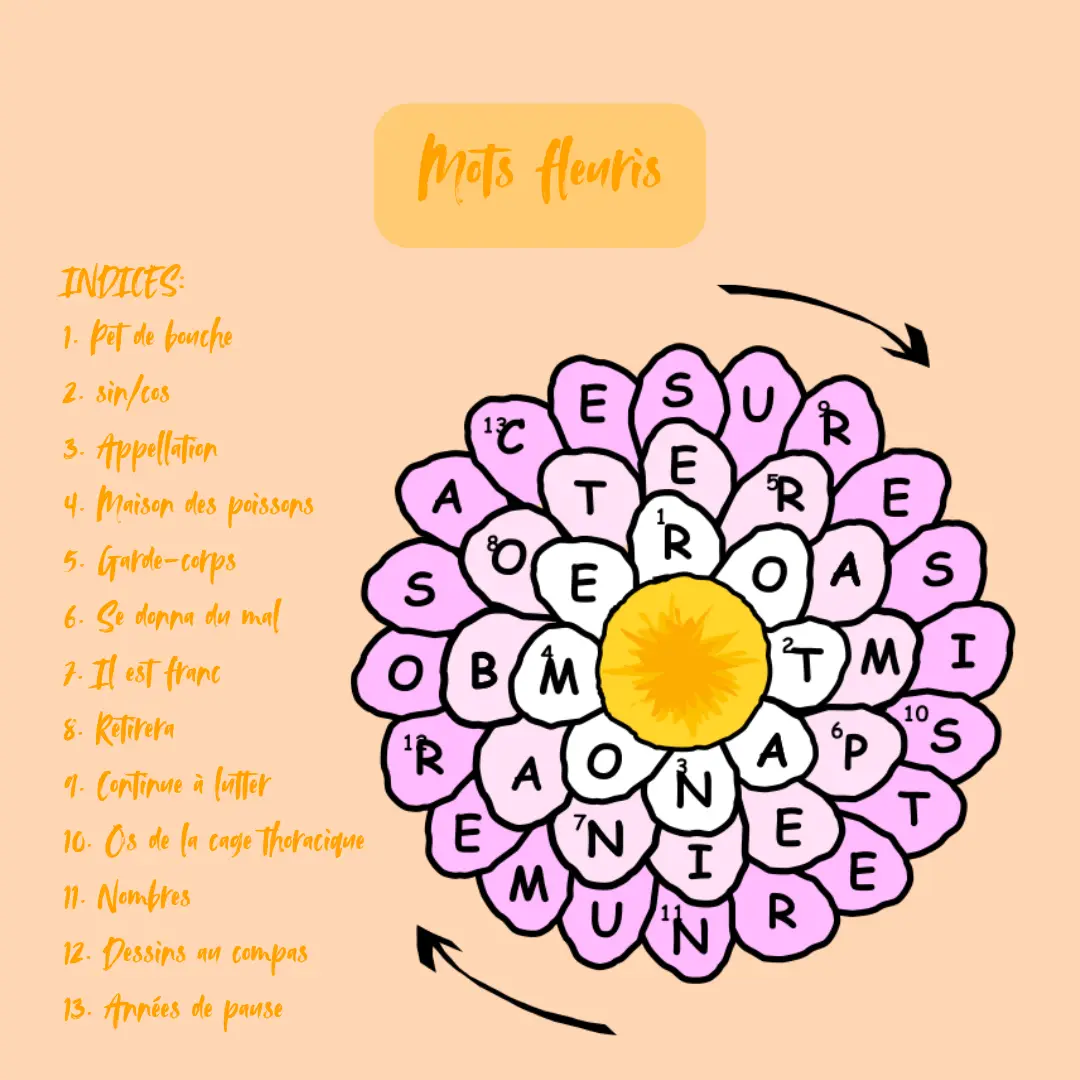 Mots fleuris
INDICES:
1. Pet de bouche
2. sin/cos
3. Appellation
4. Maison des poissons
5. Garde-corps
6. Se donna du mal
7. Il est franc
8. Retirera
9. Continue à lutter
10. Os de la cage thoracique
11. Nombres
12. Dessins au compas
13. Années de pause
1 R O 2 T A 3 N O 4 M E
5 R A M 6 P E I 7 N A B 8 O T E
9 R E S I 10 S T E R 11 N U M E 12 R O S A 13 C E S U